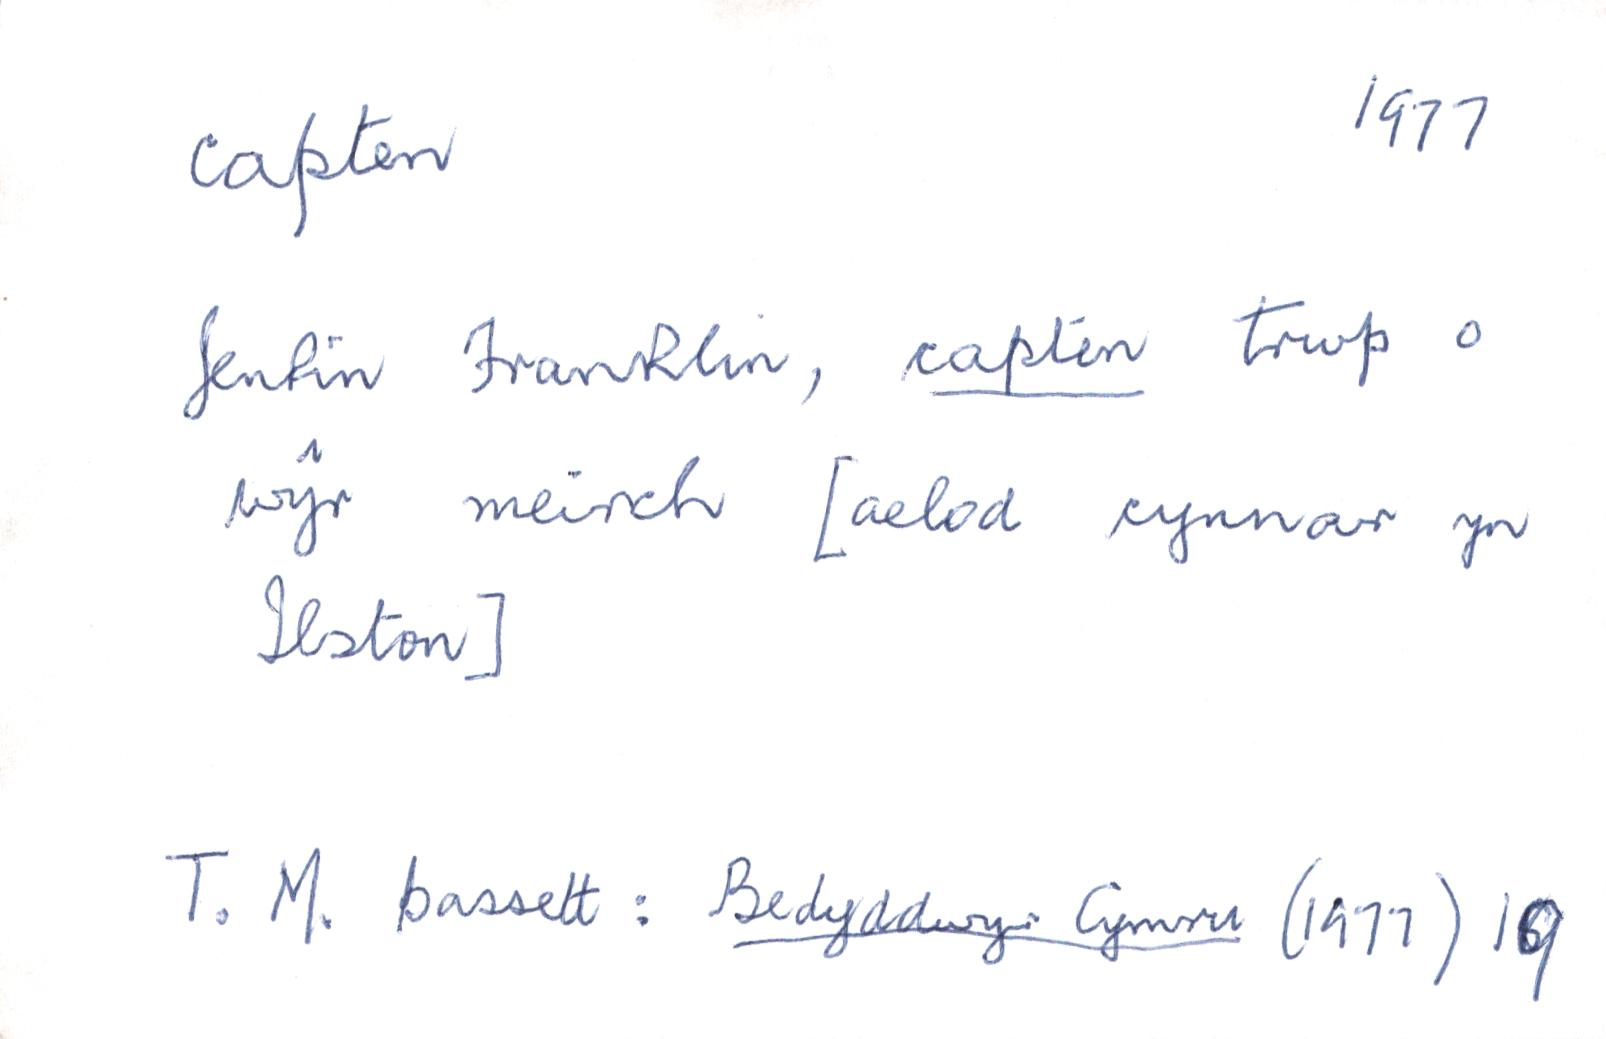 capten 1977
Jenkin Franklin, capten trwp o
wŷr meirch [aelod cynnar yn
Ilston]
T. M. Bassett: Bedyddwyr Cymru (1977)